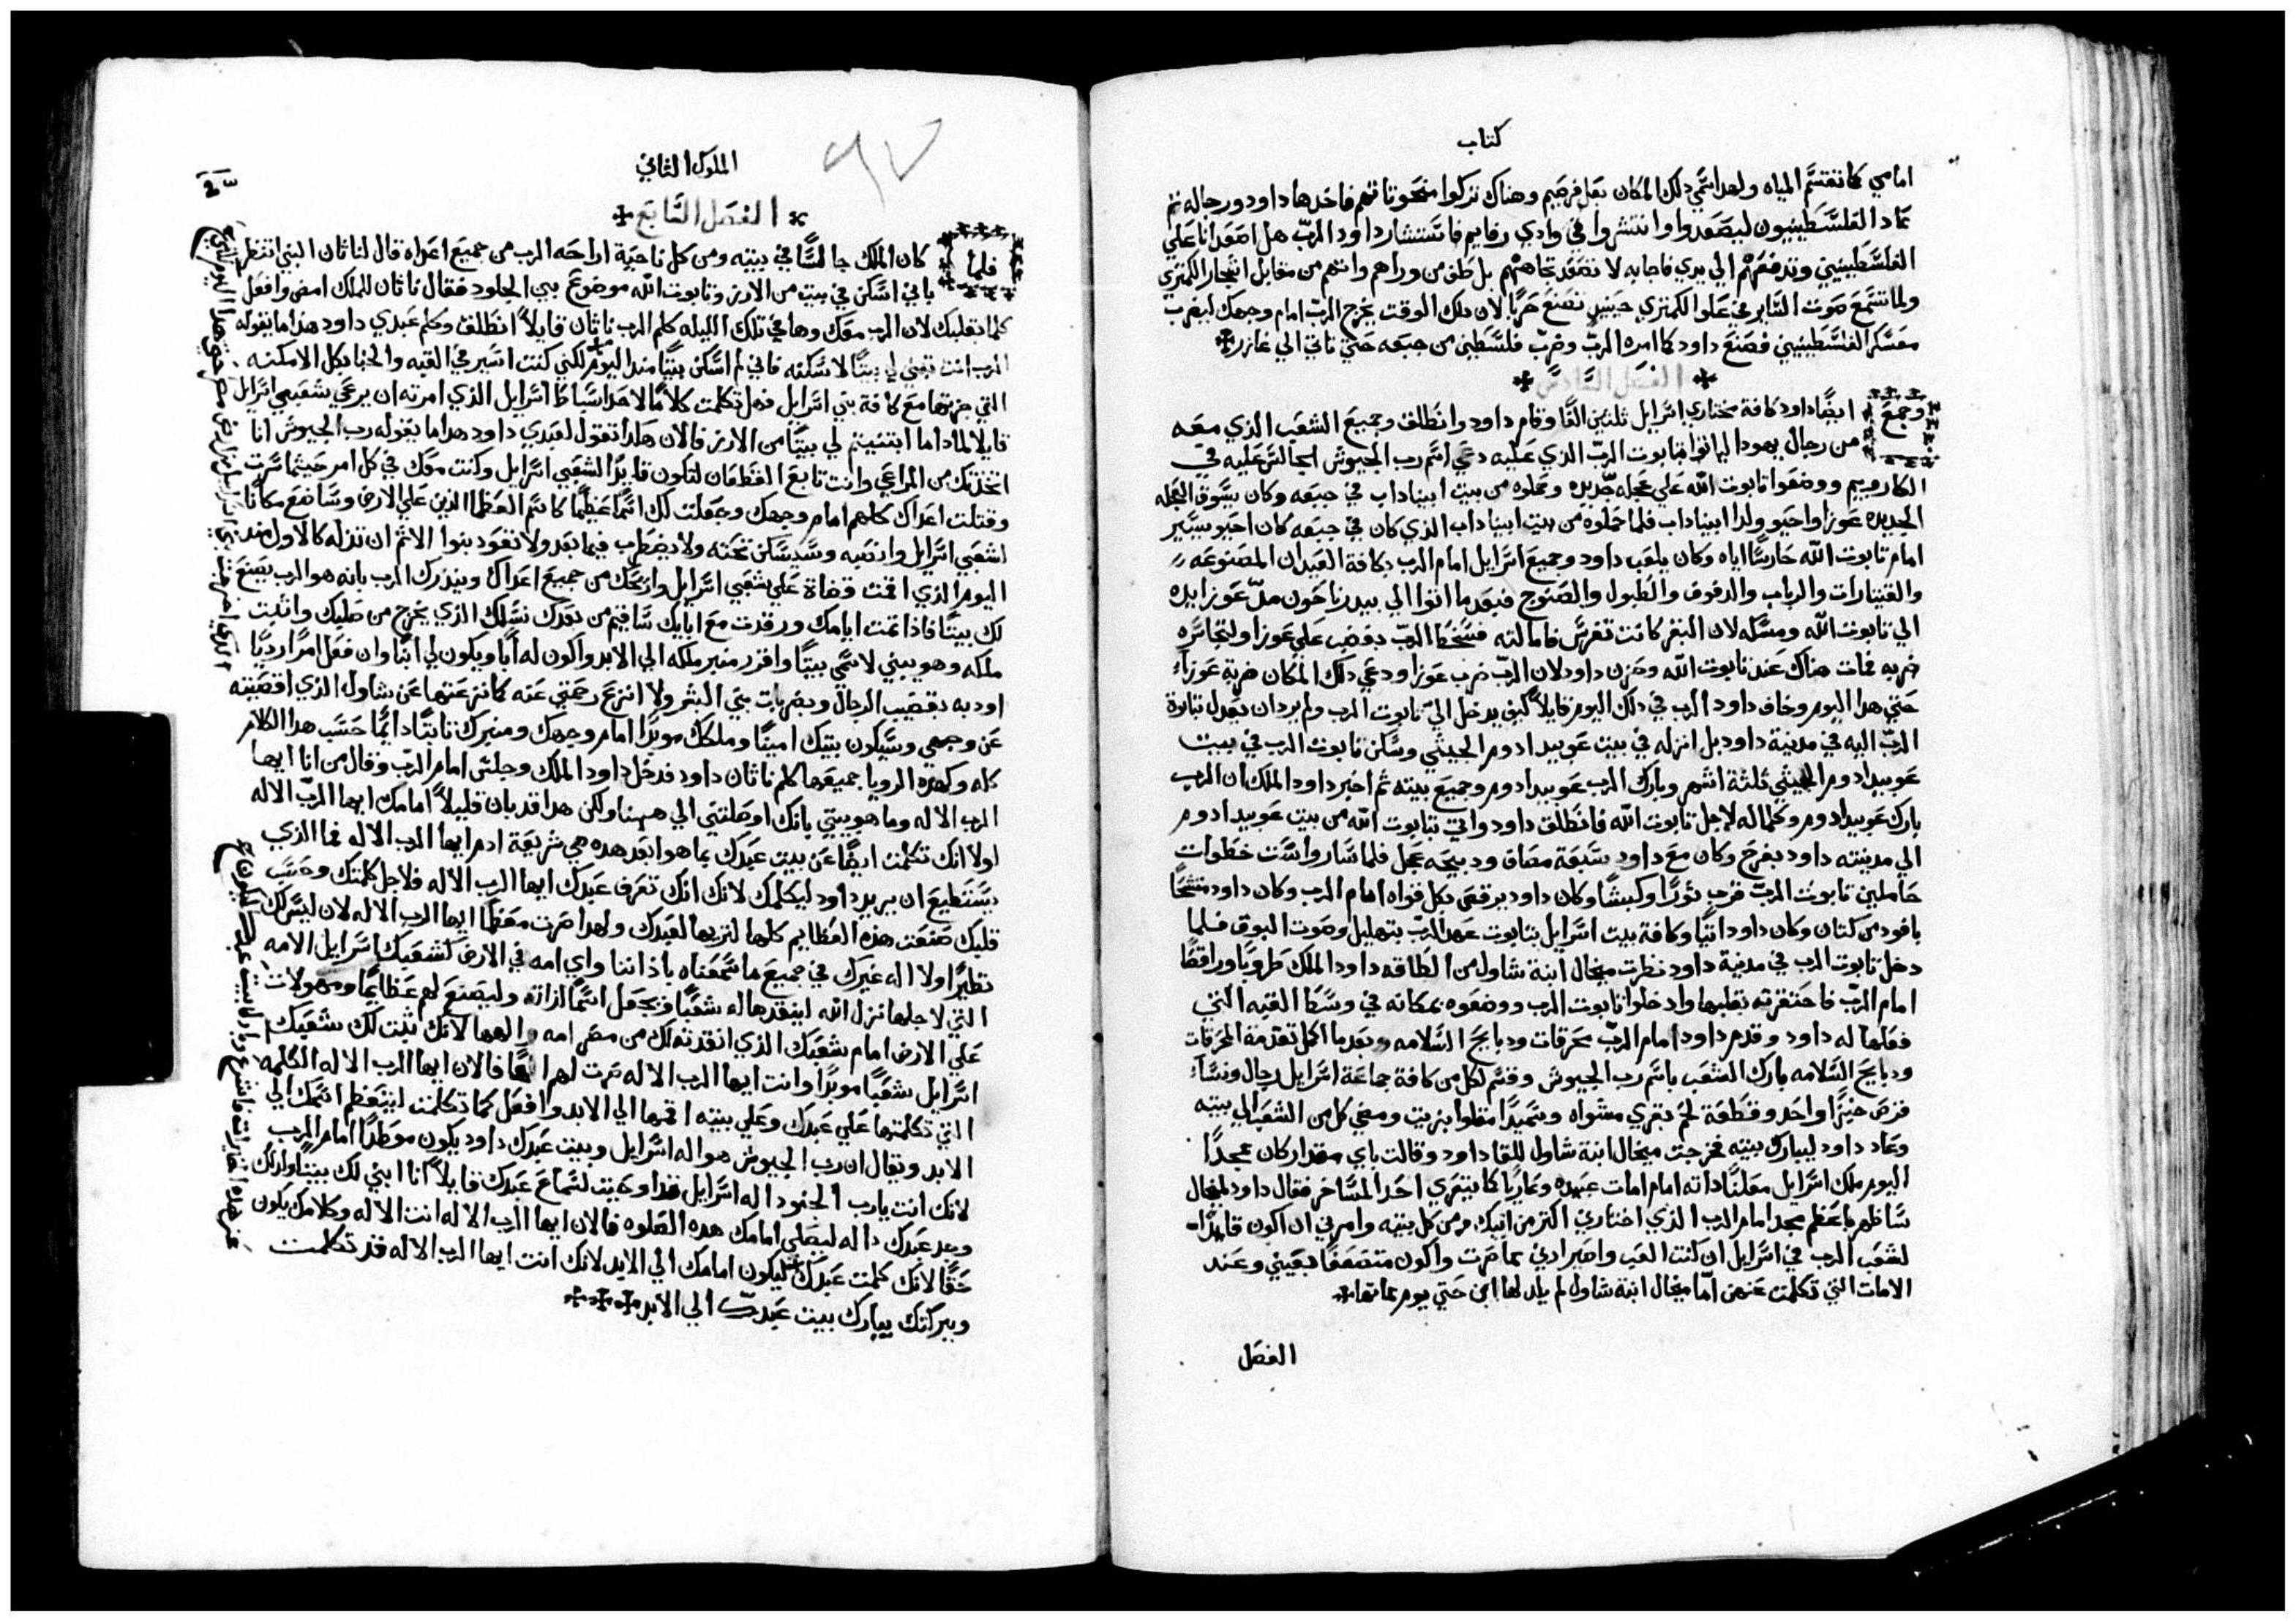 كتاب
امامي كما تقتسم المياه ولهدا سمي دلك المكان بعل فرصيم وهناك تركوا منحوتاتهم فاخدها داود ورجاله ثم
عاد الفلسطينيون ليصعدوا وانتشروا في وادي رفايم فاستشار داود الرب هل اصعد انا علي
الفلسطينيين وتدفعهم الي يدي فاجابه لا تصعد تجاهتهم بل طف من وراهم واتهم من مقابل اشجار الكمتري
ولما تسمع صوت الساير في علو الكمتري حينيد تصنع حربًا لان دلك الوقت يخرج الرب امام وجهك ليضرب
معسكر الفلسطينيين فصنع داود كما امره الرب وضرب فلسطين من جبعه حتي تاتي الي غازر
الفصل السادس
وجمع ايضًا داود كافة مختاري اسرايل ثلثين الفًا وقام داود وانطلق وجميع الشعب الذي معه
من رجال يهودا لياتوا بتابوت الرب الذي عليه دعي اسم رب الجيوش الجالس عليه في
الكاروبيم ووضعوا تابوت الله علي عجله جديده وحملوه من بيت ابيناداب في جبعه وكان يسوق العجله
الجديده عوزا واحيو ولدا ابيناداب فلما حملوه من بيت ابيناداب الذي كان في جبعه كان احيو يسير
امام تابوت الله حارسًا اياه وكان يلعب داود وجميع اسرايل امام الرب بكافة العيدان المصنوعه
والقيتارات والرباب والدفوف والطبول والصنوج فبعد ما اتوا الي بيدر ناحون مد عوزا يده
الي تابوت الله ومسكه لان البقر كانت تفرس فامالته فسخط الرب بغضب علي عوزا ولتجاسره
ضربه فمات هناك عند تابوت الله وحزن داود لان الرب ضرب عوزا ودعي دلك المكان ضربة عوزا
حتي هدا اليوم وخاف داود الرب في دلك اليوم قايلاً كيف يدخل الي تابوت الرب ولم يرد ان يعدل تابوت
الرب اليه في مدينة داود بل انزله في بيت عوبيد ادوم الجيثي وسكن تابوت الرب في بيت
عوبيد ادوم الجيثي ثلثة اشهر وبارك الرب عوبيد ادوم وجميع بيته ثم اخبر داود الملك ان الرب
بارك عوبيد ادوم وكلما له لاجل تابوت الله فانطلق داود واتي بتابوت الله من بيت عوبيد ادوم
الي مدينته داود بفرح وكان مع داود سبعة مصاف ودبيحه عجل فلما سار واست خطوات
حاملين تابوت الرب قرب ثورًا وكبشًا وكان داود يرقص بكل قواه امام الرب وكان داود متشحًا
بافود من كتان وكان داود اتيًا وكافة بيت اسرايل بتابوت عهد الرب بتهليل وصوت البوق فلما
دخل تابوت الرب في مدينة داود نظرت ميخال ابنة شاول من الطاقه داود الملك طروبًا وراقصًا
امام الرب فاحتقرته بقلبها وادخلوا تابوت الرب ووضعوه بمكانه في وسط القبه التي
فعلها له داود وقدم داود امام الرب محرقات ودبايح السلامه وبعد ما اكمل تقدمة المحرقات
ودبايح السلامه بارك الشعب باسم رب الجيوش وقسم لكل من كافة جماعة اسرايل رجال ونساء
قرص خبزًا واحد وقطعة لحم بقري مشواه وسميدًا مقلوا بزيت ومضي كل من الشعب الي بيته
وعاد داود ليبارك بيته فخرجت ميخال ابنة شاول للقا داود وقالت باي مقدار كان ممجدًا
اليوم ملك اسرايل معلنًا داته امام امات عبيده وعاريًا كما يتعري احد المساخر فقال داود لميخال
ساظهر باعظم مجد امام الرب الذي اختاري اكثر من ابيك ومن كل بيته وامرني ان اكون قايدًا
لشعب الرب في اسرايل ان كنت العب واصير ادني مما صرت واكون متضعفًا بعيني وعند
الامات التي تكلمت عنهن اما ميخال ابنة شاول لم يلد لها ابن حتي يوم مماتها
الفصل
الملوك الثاني
٩٧
الفصل السابع
فلما كان الملك جالسًا في بيته ومن كل ناحية اراحه الرب من جميع اعداه قال لناثان النبي اتنظر
باني اسكن في بيت من الارز وتابوت الله موضوع بين الجلود فقال ناثان للملك امض وافعل
كلما بقلبك لان الرب معك وها في تلك الليله كلم الرب ناثان قايلاً انطلق وكلم عبدي داود هدا ما يقوله
الرب انت تبني لي بيتًا لاسكنه فاني لم اسكن بيتًا مند اليوم لكني كنت اسير في القبه والخبا بكل الامكنه
التي جزتها مع كافة بني اسرايل فهل تكلمت كلامًا لاحد اسباط اسرايل الذي امرته ان يرعي شعبي اسرايل
قايلا لماداما ابتنيتم لي بيتًا من الارز فالان هكدا تقول لعبدي داود هدا ما يقوله رب الجيوش انا
اتخدتك من المراعي وانت تابع القطعان لتكون قايدًا لشعبي اسرايل وكنت معك في كل امر حيثما سرت
وقتلت اعداك كلهم امام وجهك وجعلت لك اسمًا عظيمًا كاسم العظما الذين علي الارض وساضع مكانًا
لشعبي اسرايل وانصبه وسيسكن تحته ولا يضطرب فيما بعد ولا تعود بنوا الاثم ان تدله كالاول مند
اليوم الذي اقمت قضاة علي شعبي اسرايل واريحك من جميع اعداك ويندرك الرب بانه هو الرب يصنع
لك بيتًا فادا تمت ايامك ورقدت مع ابايك ساقيم من بعدك نسلك الذي يخرج من صلبك واثبت
ملكه وهو يبني لاسمي بيتًا واقرر منبر ملكه الي الابد واكون له ابًا ويكون لي ابنًا وان فعل امرًا رديًا
اودبه بقضيب الرجال وبضربات بني البشر ولا انزع رحمتي عنه كما نزعتها عن شاول الذي اقصيته
عن وجهي وسيكون بيتك امينًا وملكك موبدًا امام وجهك ومنبرك ثابتًا دايمًا حسب هدا الكلام
كله وكهده الرويا جميعها كلم ناثان داود فدخل داود الملك وجلس امام الرب وقال من انا ايها
الرب الاله وما هو بيتي بانك اوصلتني الي ههنا ولكن هدا قد بان قليلاً امامك ايها الرب الاله
لولا انك تكلمت ايضًا عن بيت عبدك بما هو ابعد هده هي شريعة ادم ايها الرب الاله فما الذي
يستطيع ان يريد داود ليكلمك لانك انك تعرف عبدك ايها الرب الاله فلاجل كلمتك وحسب
قلبك صنعت هذه العظايم كلها لتريها لعبدك ولهدا صرت معظمًا ايها الرب الاله لان ليس لك
نظيرًا ولا اله غيرك في جميع ما سمعناه باداننا واي امه في الارض كشعبك اسرايل الامه
التي لاجلها نزل الله لينقدها له شعبًا ويجعل اسمًا لداته وليصنع لهم عظايمًا ومهولات
علي الارض امام شعبك الذي انقدته لك من مصر امه والهها لانك ثبت لك شعبك
اسرايل شعبًا موبدًا وانت ايها الرب الاله صرت لهم الهًا فالان ايها الرب الاله الكلمه
التي تكلمتها علي عبدك وعلي بيته اقمها الي الابد وافعل كما تكلمت ليتعظم اسمك الي
الابد ويقال ان رب الجيوش هو اله اسرايل وبيت عبدك داود يكون موطدًا امام الرب
لانك انت يارب الجنود اله اسرايل قد اوعيت لسماع عبدك قايلاً انا ابني لك بيتًا ولدلك
وجد عبدك داله ليصلي امامك هده الصلوه فالان ايها الرب الاله انت الاله وكلامك يكون
حقًا لانك كلمت عبدك ليكون امامك الي الابد لانك انت ايها الرب الاله قد تكلمت
وببركتك يبارك بيت عبدك الي الابد